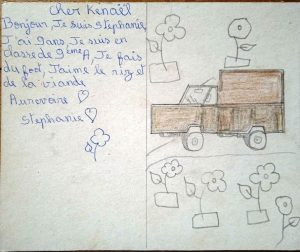 Cher Kenaël
Bonjour, Je suis Stephanie
J'ai 9ans, Je suis en
classe de 9èmeA, Je fais
du foot, J'aime le riz et
de la viande
Aurevoire
Stephanie